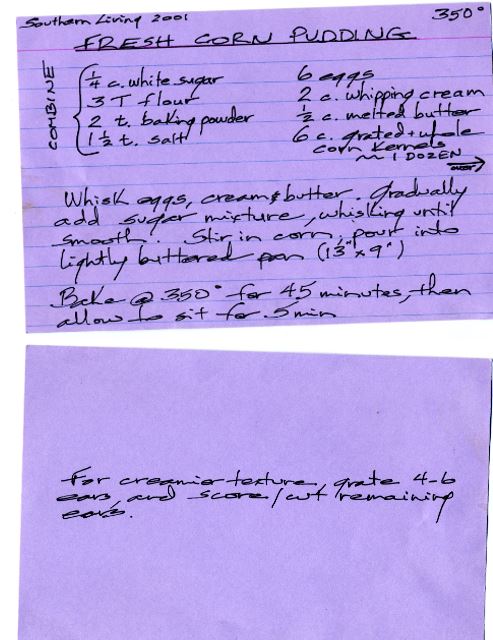 Southern Living 2001
350°
FRESH CORN PUDDING
COMBINE
1/4 c. white sugar
3 T flour
2 t. baking powder
1 1/2 t. salt
6 eggs
2 c. whipping cream
1/2 c. melted butter
6 c. grated + whole
corn kernels
~ 1 DOZEN
over
Whisk eggs, cream & butter. Gradually
add sugar mixture, whisking until
smooth. Stir in corn, pour into
lightly buttered pan (13"x9")
Bake @ 350° for 45 minutes, then
allow to sit for 5 min
For creamier texture, grate 4-6
ears and score/cut remaining
ears.